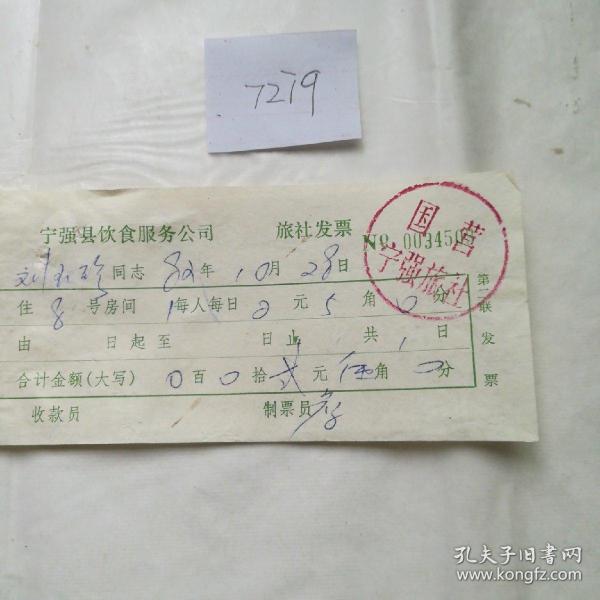 7279
宁强县饮食服务公司 旅社发票
国营
宁强旅社
No 003450
同志 82年 10月 28日
住 8 号房间 1 每人每日 2 元 5 角 0 分
由 日起至 日止 共 1 日
合计金额(大写) 0 百 0 拾 贰 元 伍 角 0 分
收款员 制票员
第二联 发票
孔夫子旧书网
www.kongfz.com